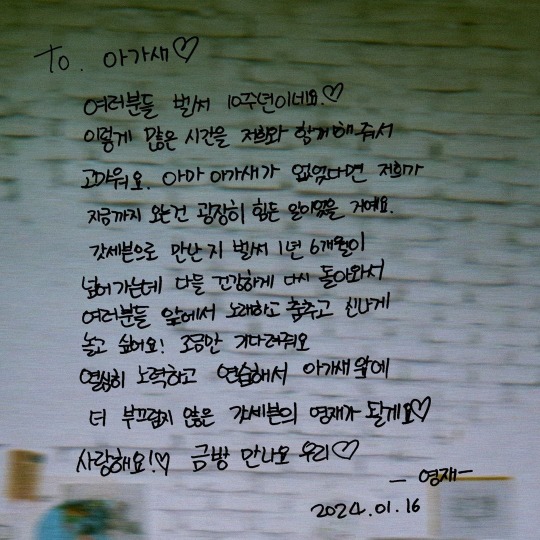 To. 아가새♡
여러분들 벌써 10주년이네요.♡
이렇게 많은 시간을 저희와 함께 해 줘서
고마워요. 아마 아가새가 없었다면 저희가
지금까지 오는건 굉장히 힘든 일이었을 거예요.
갓세븐으로 만난지 벌써 1년 6개월이
넘어가는데 다들 건강하게 다시 돌아와서
여러분들 앞에서 노래하고 춤추고 신나게
놀고 싶어요! 조금만 기다려줘요
열심히 노력하고 연습해서 아가새 앞에
더 부끄럽지 않은 갓세븐의 영재가 될게요♡
사랑해요!♡ 금방 만나요 우리♡
- 영재 -
2024.01.16